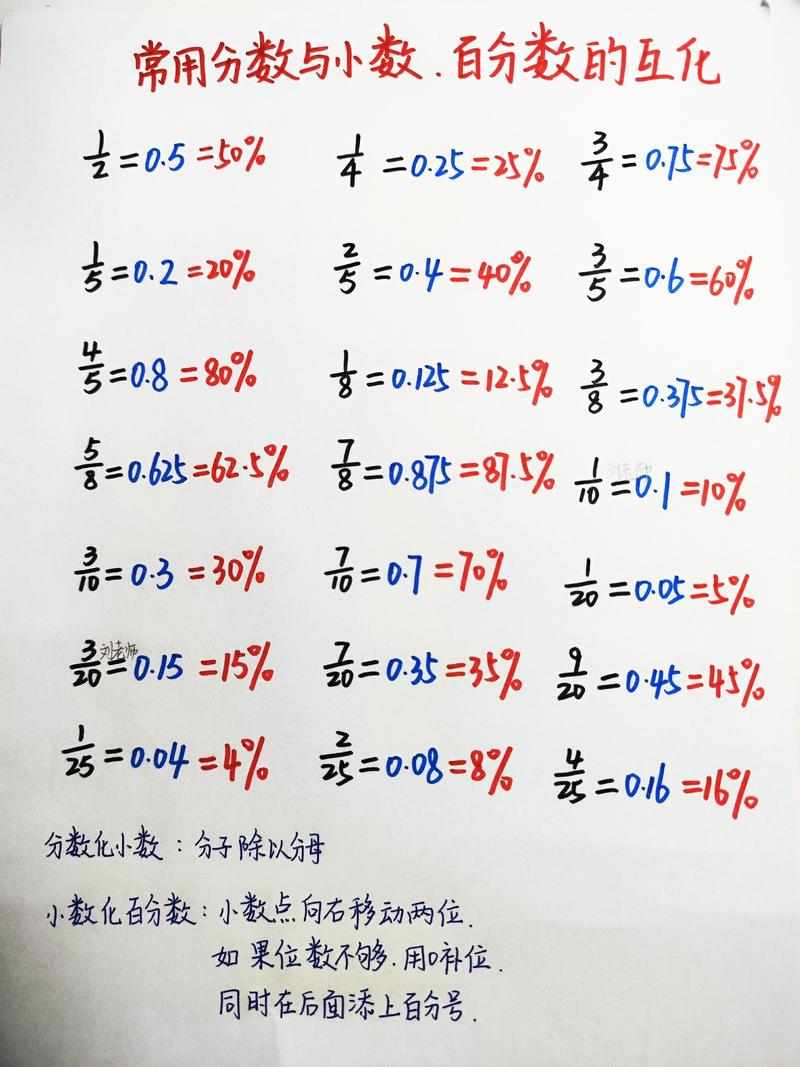 常用分数与小数.百分数的互化
1/2=0.5=50% 1/4=0.25=25% 3/4=0.75=75%
1/5=0.2=20% 2/5=0.4=40% 3/5=0.6=60%
4/5=0.8=80% 1/8=0.125=12.5% 3/8=0.375=37.5%
5/8=0.625=62.5% 7/8=0.875=87.5% 1/10=0.1=10%
3/10=0.3=30% 7/10=0.7=70% 1/20=0.05=5%
刘老师
3/20=0.15=15% 7/20=0.35=35% 9/20=0.45=45%
1/25=0.04=4% 2/25=0.08=8% 4/25=0.16=16%
分数化小数:分子除以分母
小数化百分数:小数点向右移动两位.
如果位数不够.用0补位.
同时在后面添上百分号.